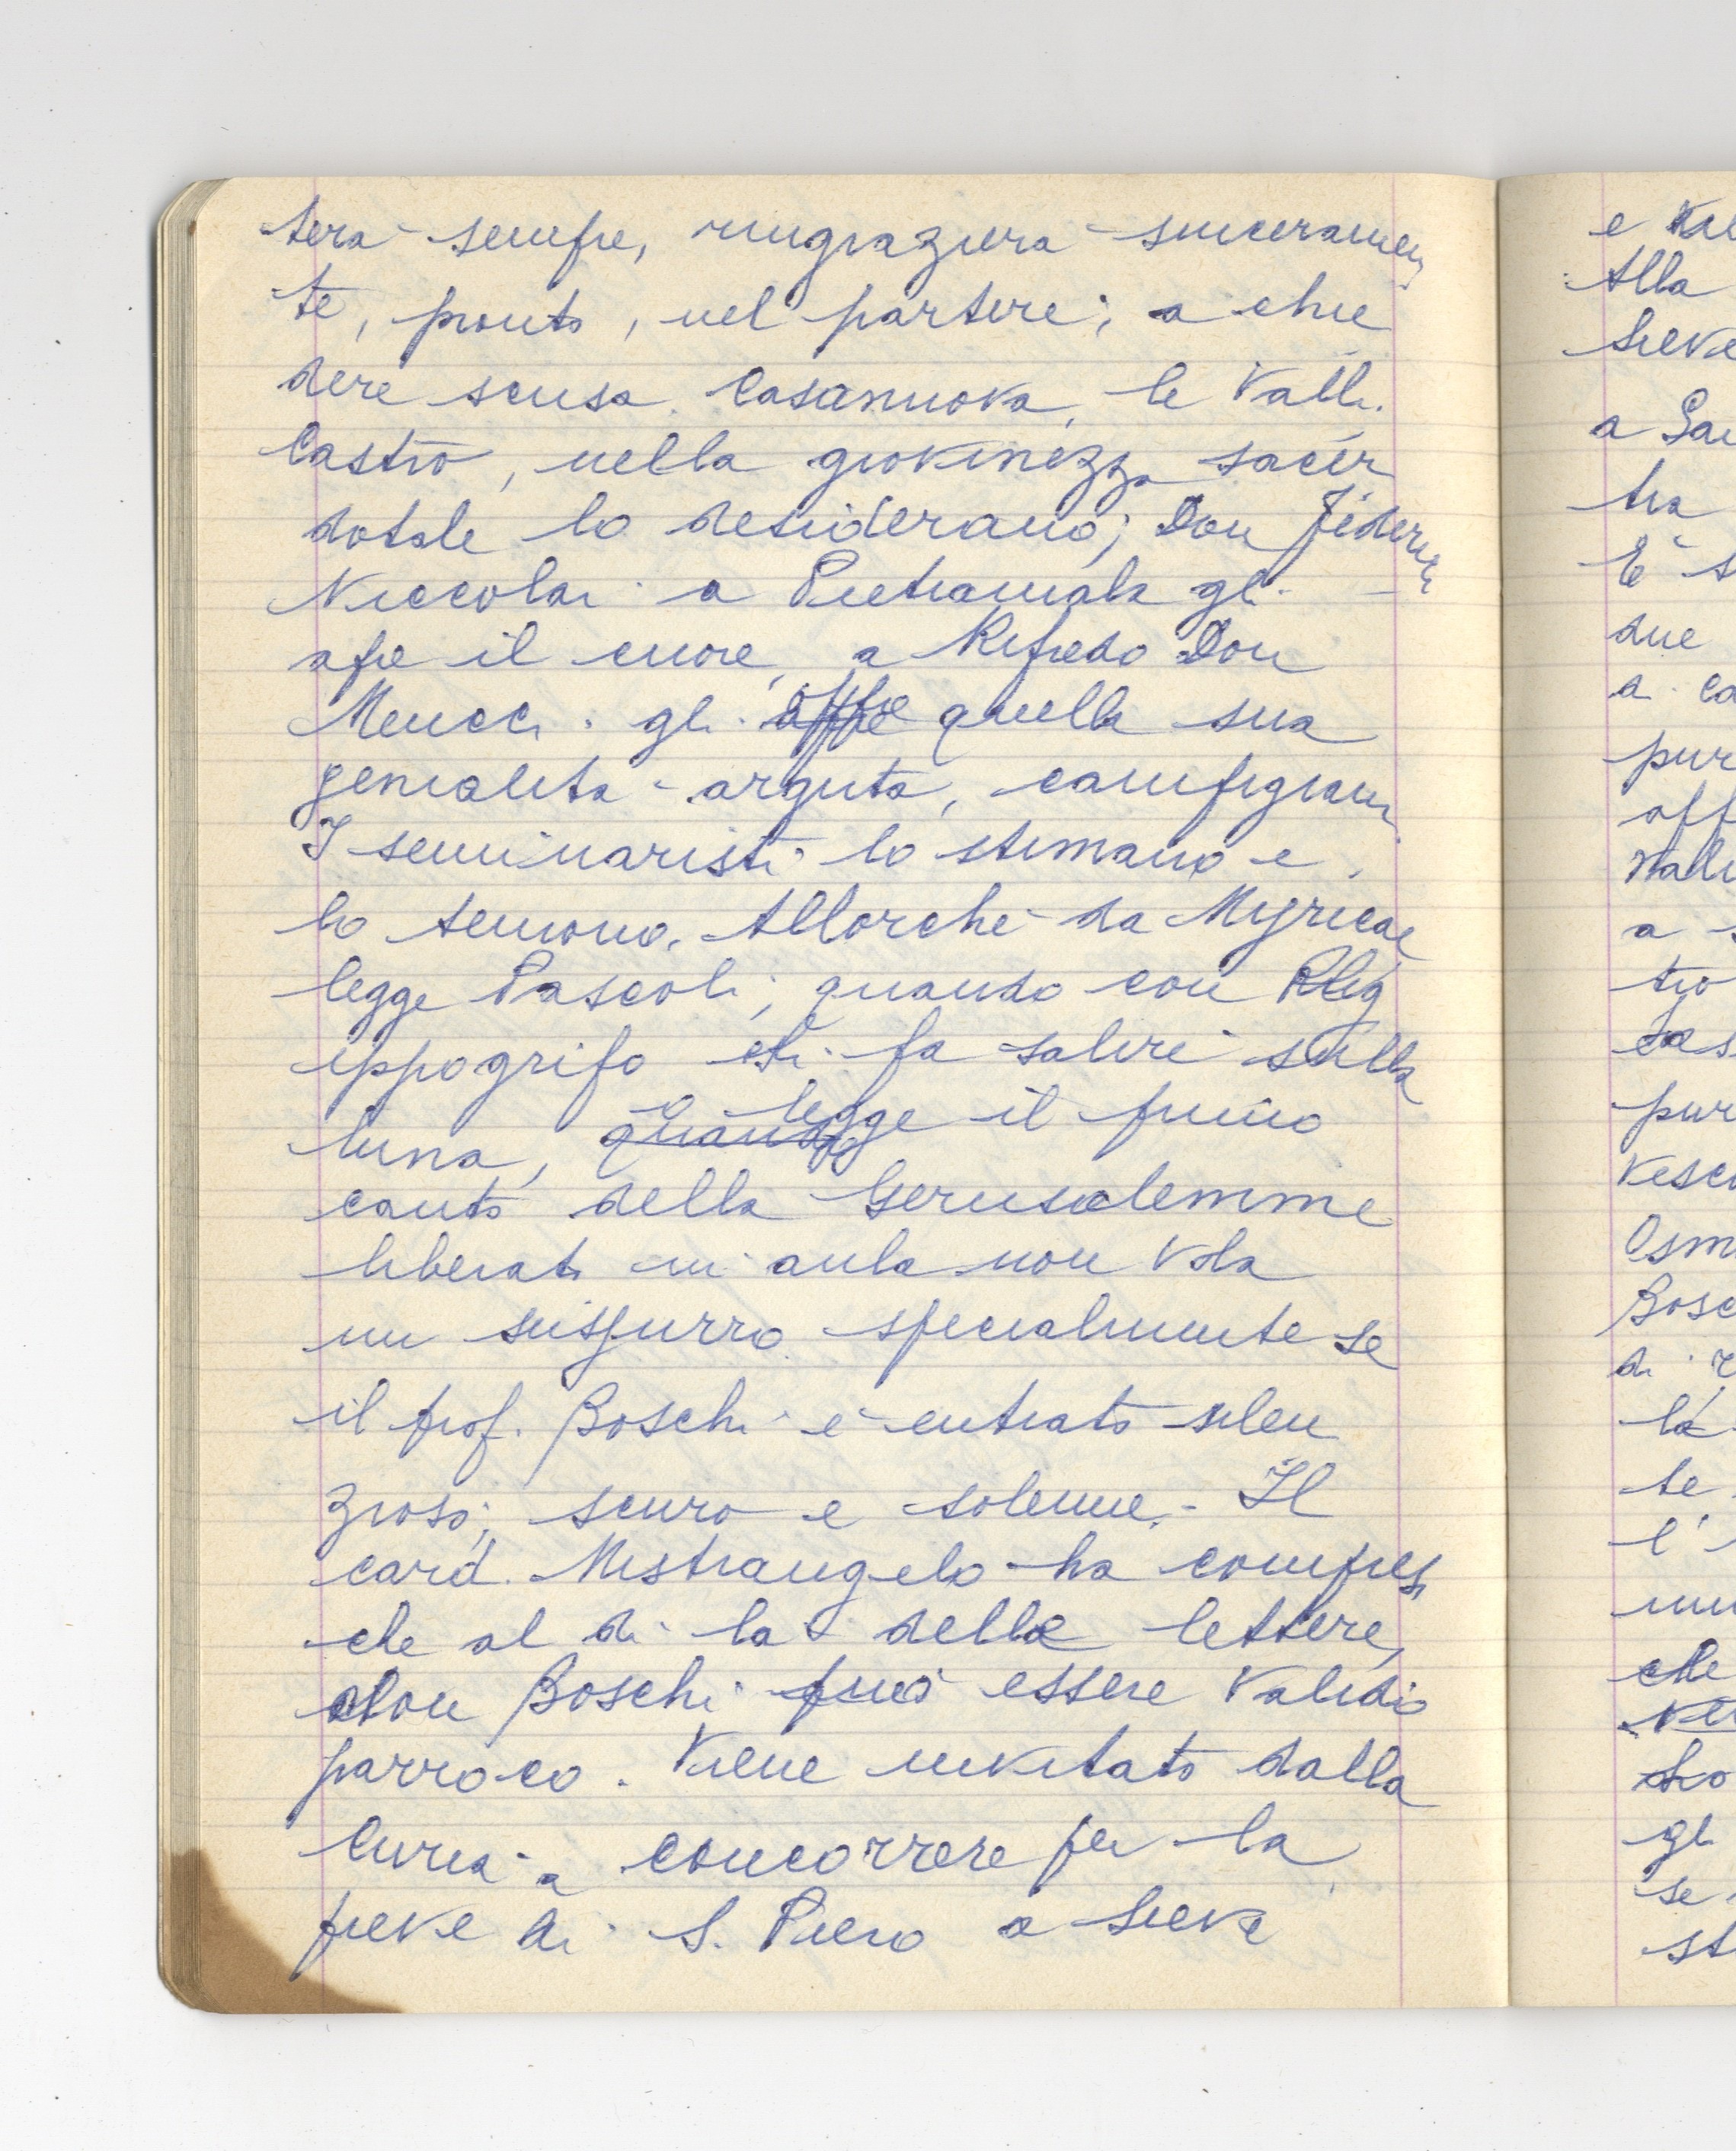 terà sempre, ringrazierà sinceramen
te, pronto, nel partire, a chie
dere scusa. Casanuova, le Valli.
Castro, nella giovinezza sacer
dotale lo desiderano; Don Federico
Niccolai a Pietramala gli
apre il cuore, a Rifredo Don
Meucci gli offre quella sua
genialità arguta, campigiana
I seminaristi lo stimano e
lo temono. Allorché da Myricae
legge Pascoli; quando con l'
ippogrifo ti fa salire sulla
luna, quando o legge il primo
canto della Gerusalemme
liberata in aula non vola
un sussurro specialmente se
il prof. Boschi è entrato silen
zioso, scuro e solenne. - Il
card. Mistrangelo ha compreso
che al di là delle lettere,
don Boschi può essere valido
parroco. Viene invitato dalla
Curia a concorrere per la
pieve di S. Piero a Sieve
e
Alla
Sieve
a
tra
È s
due
a. ca
pur
off
a s
tro
pur
Vesco
Osm
Bosc
di
là
te
l'
che
gli
se
st